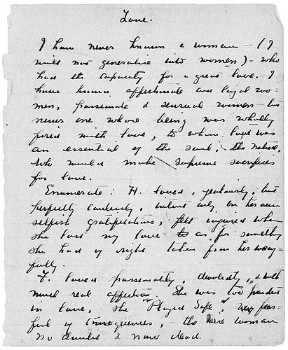 Love.
I have never known a woman — (I
will not generalize into women) — who
had the capacity for a great love. I
have known affectionate and loyal wo-
men, passionate & sensual women — but
never one whose being was wholly
fused with love, to whom love was
an essential of the soul; the nature
who would make supreme sacrifices
for love.
Enumerate: H. loved, jealously, but
perfectly, intent only on her own
selfish gratifications; felt injured when
she lost my love as for something
she had of right taken from her wrong-
fully.
F. loved passionately, devotedly, & with
much real affection. She was too prudent
in love, she "Played Safe",
ful of consequences, the woman
No doubt I now dead.